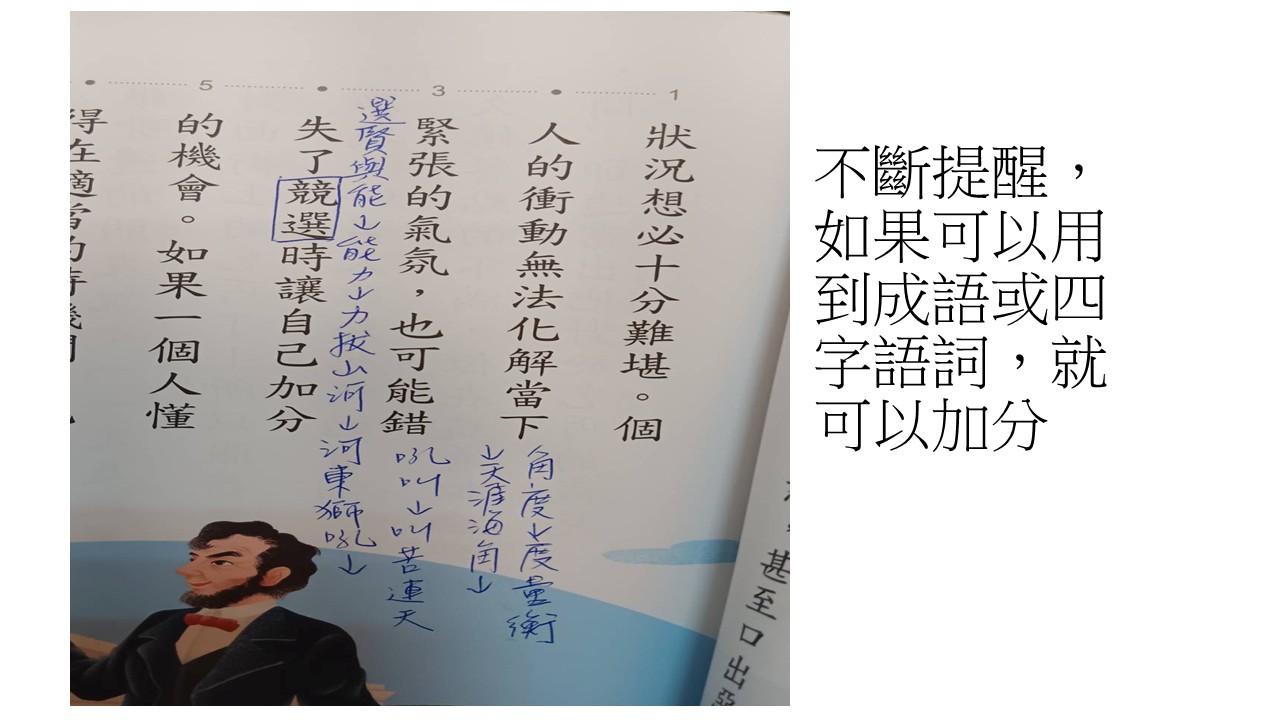 1
3
5
狀況想必十分難堪。個
人的衝動無法化解當下
緊張的氣氛，也可能錯
失了競選時讓自己加分
的機會。如果一個人懂
選賢與能↓能力↓力拔山河↓河東獅吼↓
吼叫↓叫苦連天
↓天涯海角↓
角度↓度量衡
甚至口出
不斷提醒，
如果可以用
到成語或四
字語詞，就
可以加分